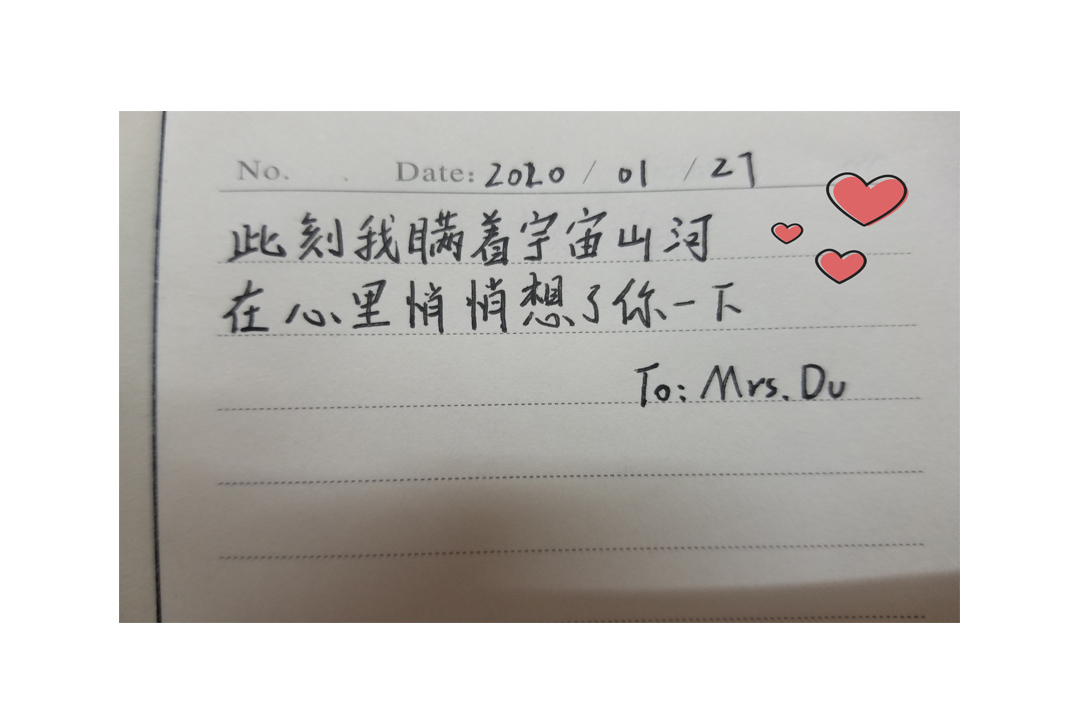 No. Date: 2020 / 01 / 27
此刻我瞒着宇宙山河
在心里悄悄想了你一下
To: Mrs. Du